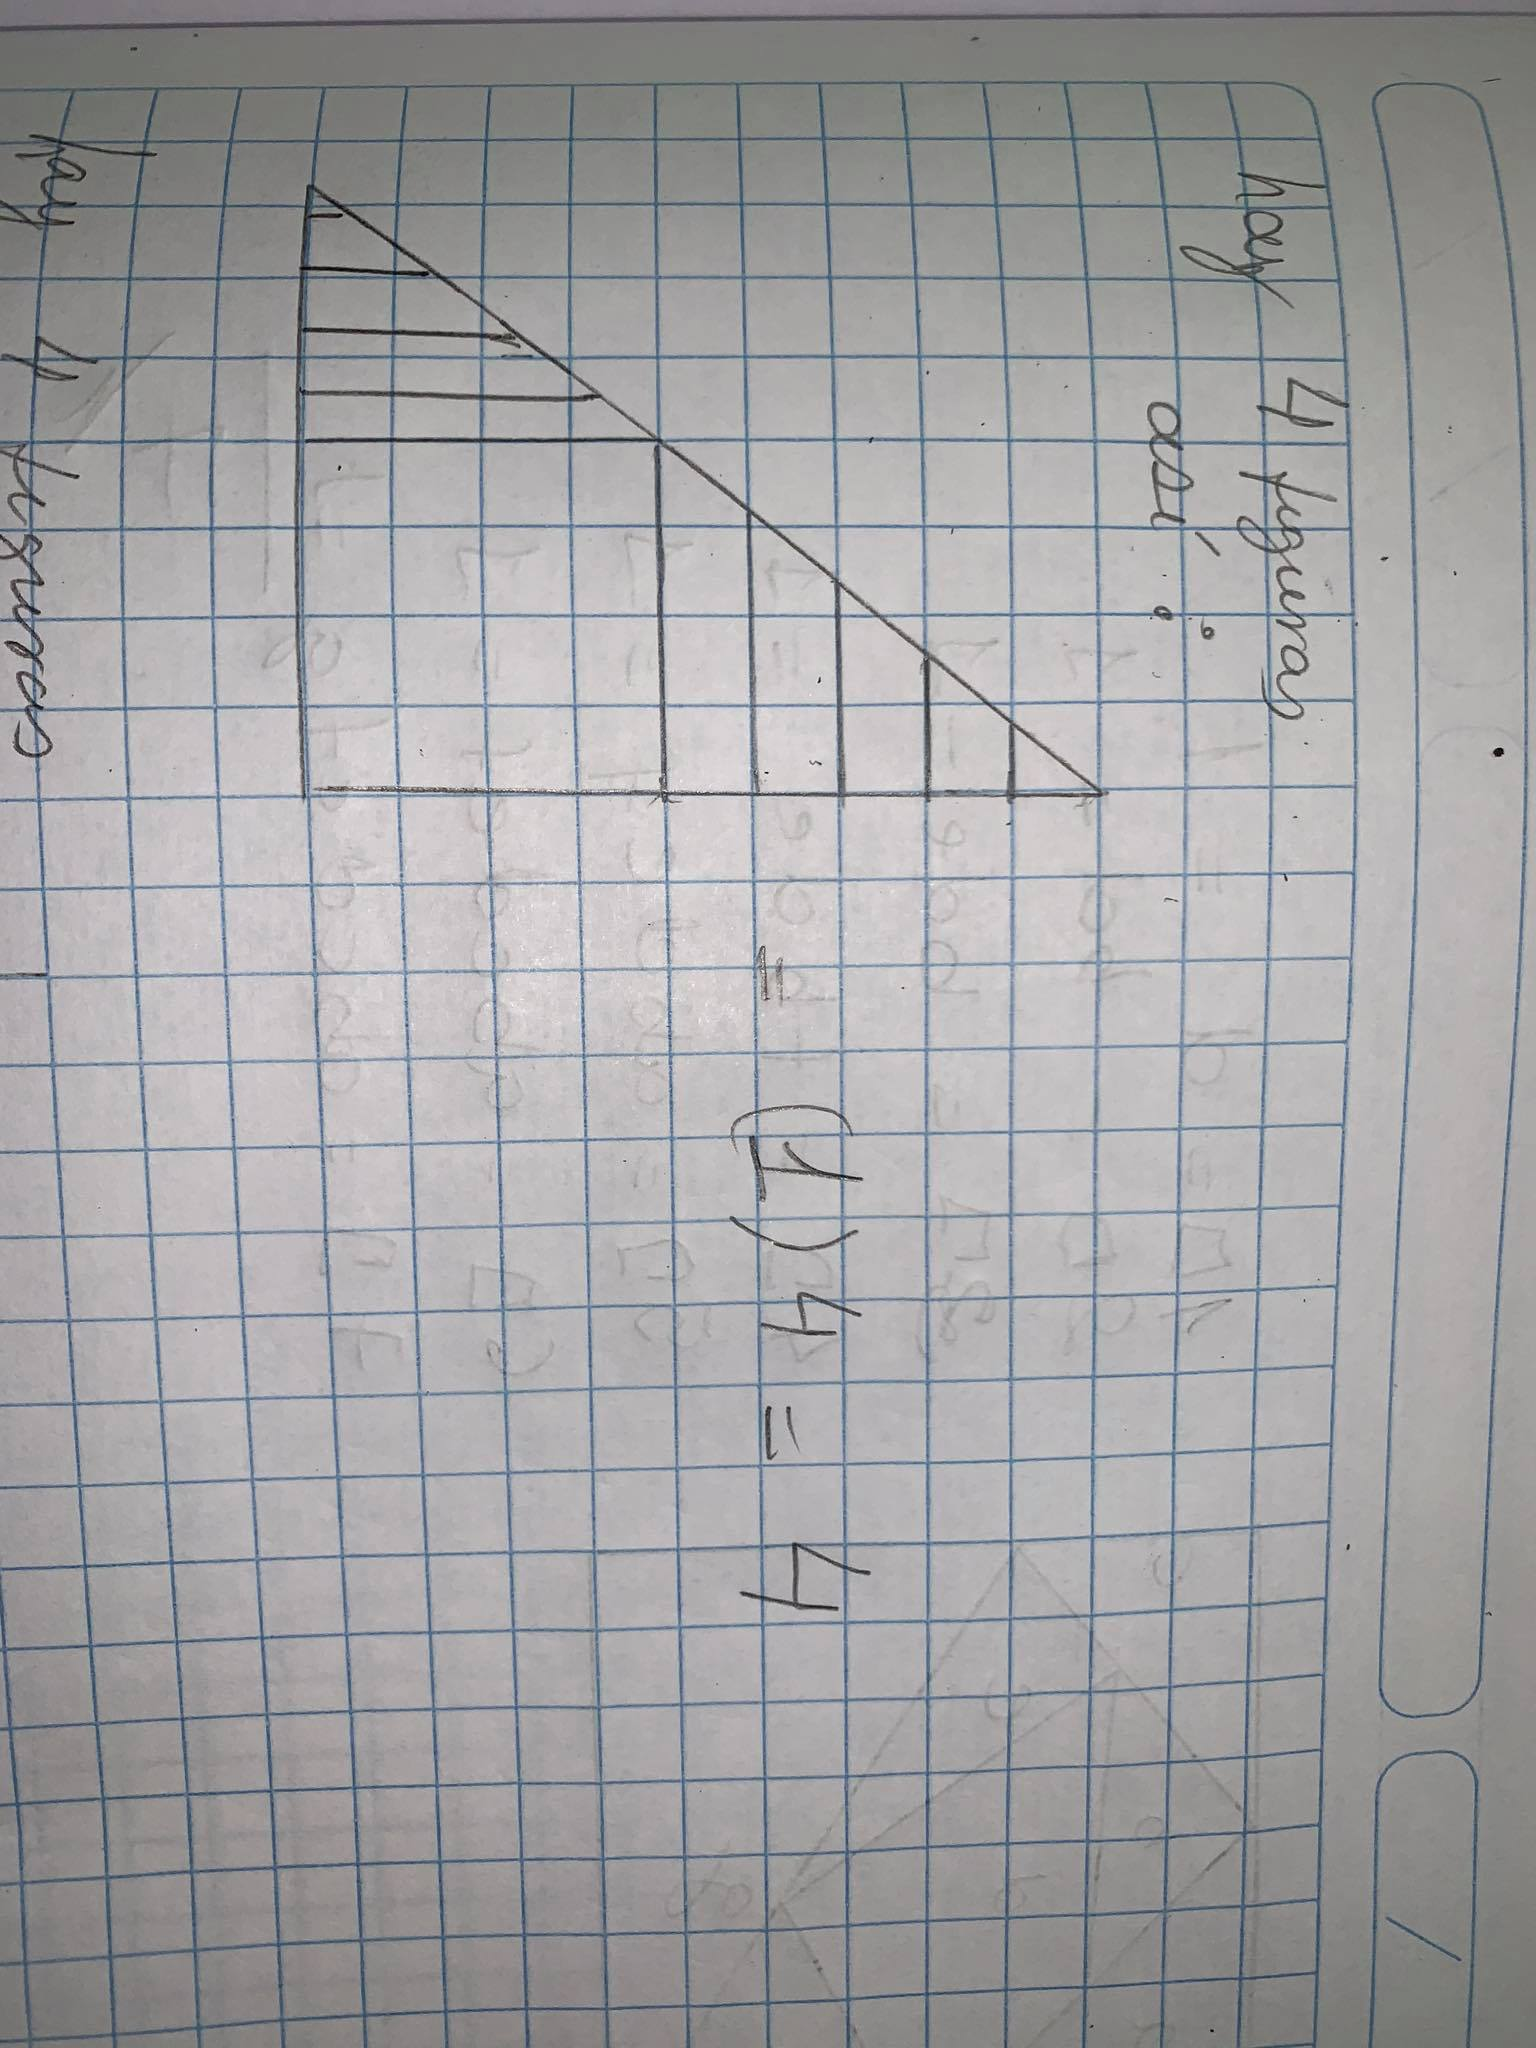 hay 4 figuras
así :
= (1)4 = 4
hay 4 figuras